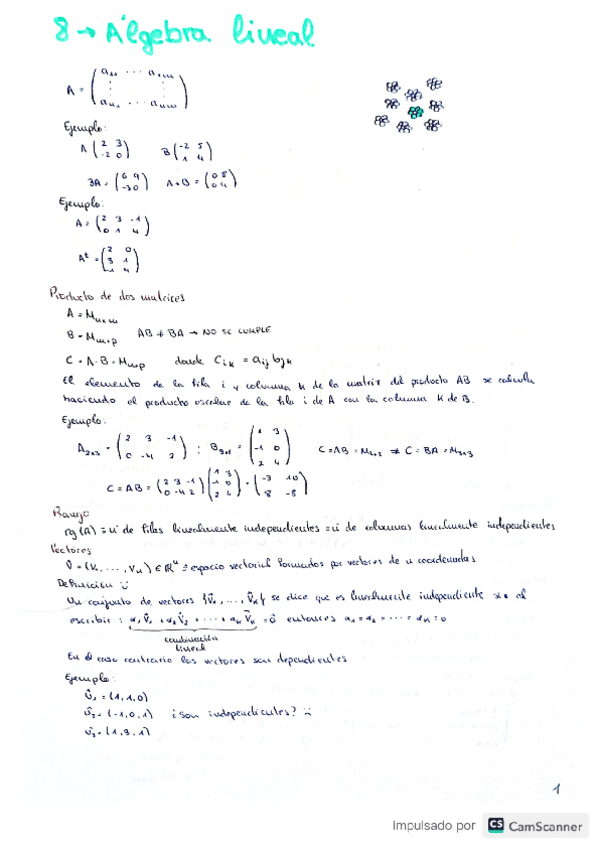 8 → Álgebra lineal
A = ( a₁₁ ··· a₁ₘ ⋮ ⋮ aₙ₁ ··· aₙₘ )
Ejemplo:
A ( 2 3 -2 0 ) B ( -2 5 1 4 )
3A = ( 6 9 -3 0 ) A+B = ( 0 8 0 4 )
Ejemplo:
A = ( 2 3 -1 0 1 4 )
Aᵗ = ( 2 0 3 1 -1 4 )
Producto de dos matrices
A = Mₙₓₘ
B = Mₘₓₚ AB ≠ BA → NO SE CUMPLE
C = A·B = Mₙₓₚ donde Cᵢₖ = aᵢⱼ bⱼₖ
El elemento de la fila i y columna k de la matriz del producto AB se calcula
haciendo el producto escalar de la fila i de A con la columna k de B.
Ejemplo:
A₂ₓ₃ = ( 2 3 -1 0 -4 2 ) ; B₃ₓ₂ = ( 1 3 -1 0 2 4 ) C = AB = M₂ₓ₂ ≠ C = BA = M₃ₓ₃
C = AB = ( 2 3 -1 0 -4 2 ) ( 1 3 -1 0 2 4 ) = ( -3 10 8 -8 )
Rango
rg (A) = nº de filas linealmente independientes = nº de columnas linealmente independientes
Vectores
v̄ = (v₁, ..., vₙ) ∈ ℝⁿ = espacio vectorial formados por vectores de n coordenadas
Definición
Un conjunto de vectores { v̄₁, ..., v̄ₖ } se dice que es linealmente independiente si al
escribir : a₁ v̄₁ + a₂ v̄₂ + ··· + aₖ v̄ₖ = 0̄ entonces a₁ = a₂ = ··· = aₖ = 0
combinación
lineal
En el caso contrario los vectores son dependientes
Ejemplo:
v̄₁ = (1, 1, 0)
v̄₂ = (-1, 0, 1) ¿son independientes?
v̄₃ = (1, 3, 1)
1
Impulsado por CS CamScanner